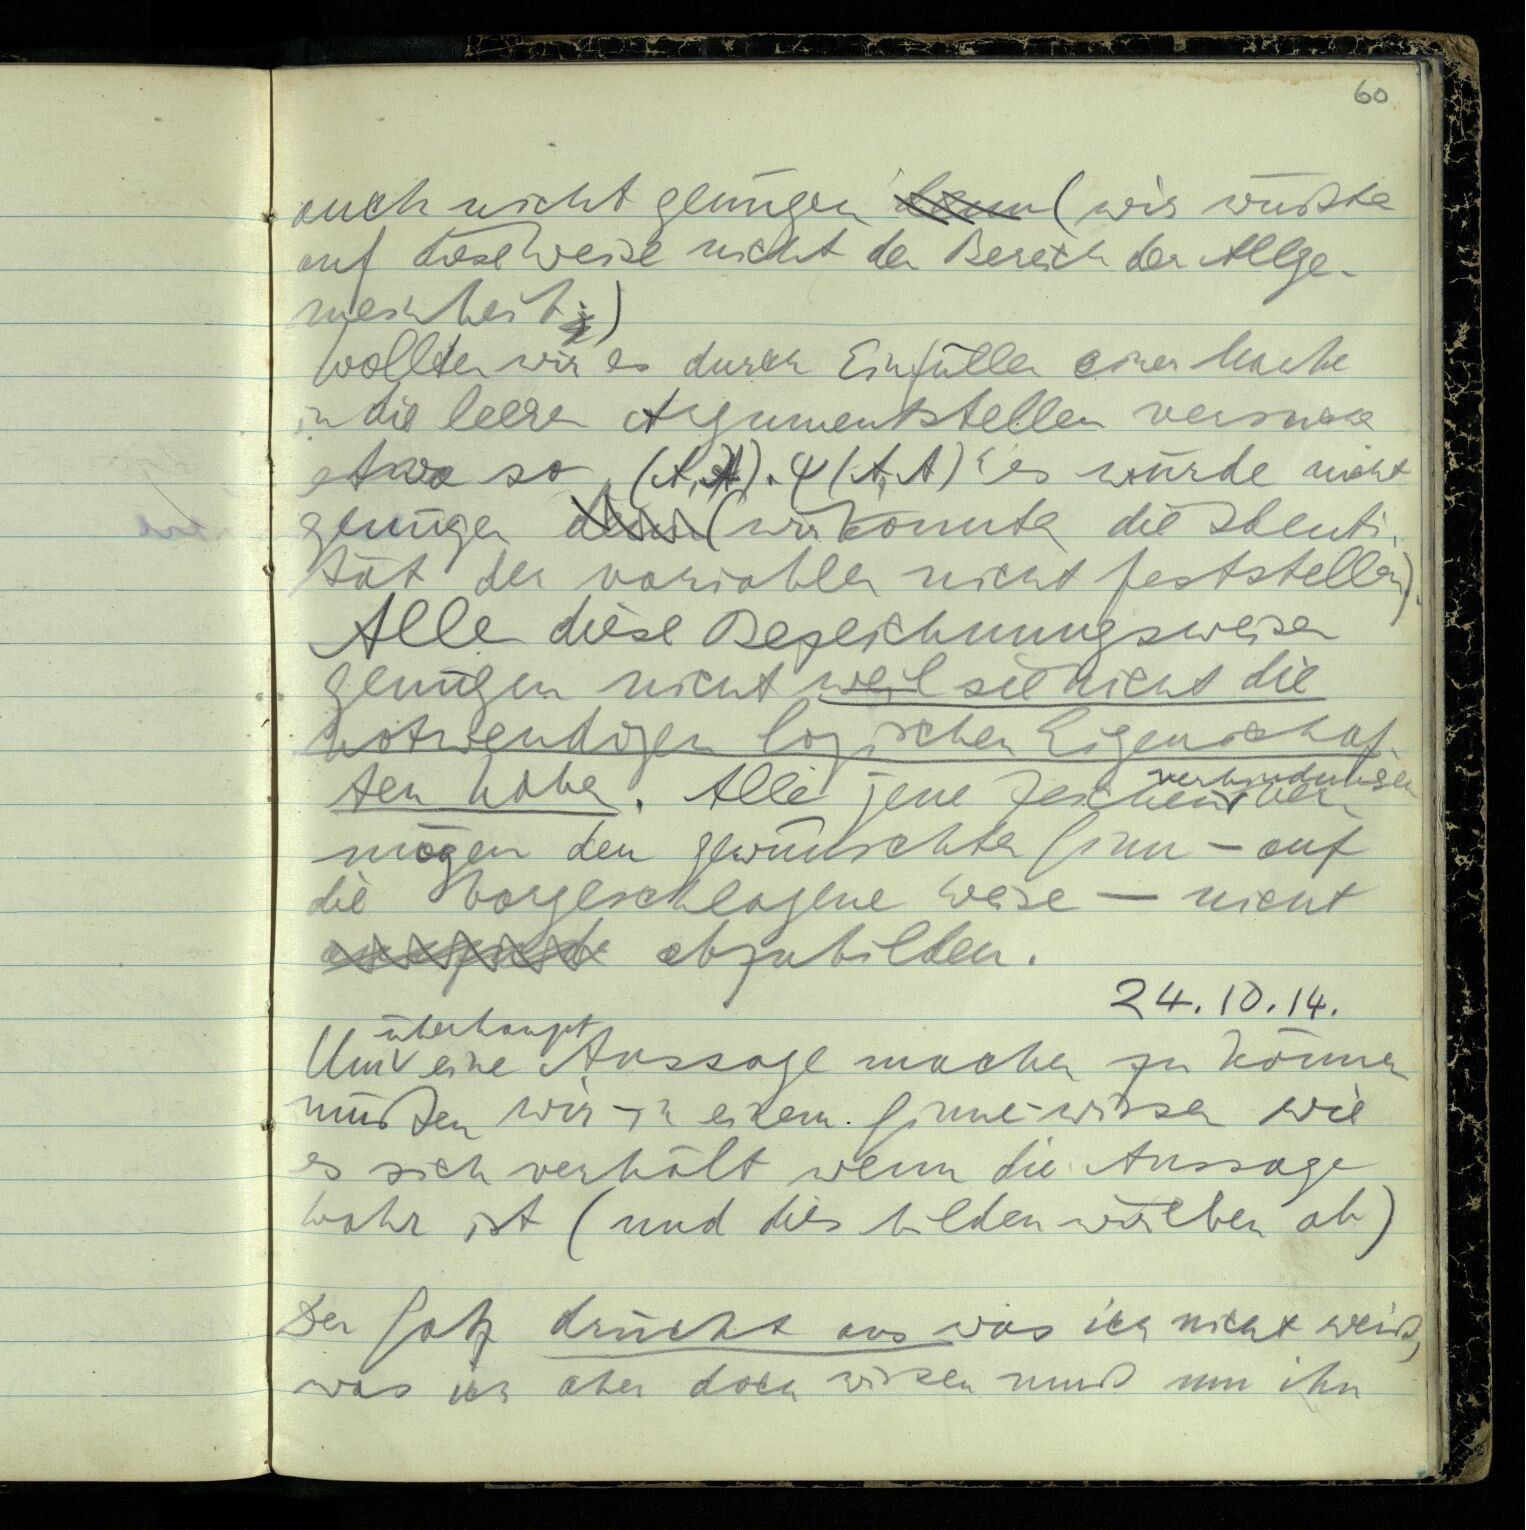 60
auch nicht genügen denn (wir wüßten
auf diese Weise nicht den Bereich der Allge-
meinheit;)
Wollten wir es durch Einfüllen einer Marke
in die leeren Argumentstellen versuchen
etwa so (A,A).ψ(A,A) es würde nicht
genügen denn (wir könnten die Identi-
tät der variablen nicht feststellen).
Alle diese Bezeichnungsweisen
genügen nicht weil sie nicht die
notwendigen logischen Eigenschaf-
ten haben. Alle jene Zeichenverbindungen ver-
mögen den gewünschten Sinn – auf
die vorgeschlagene Weise – nicht
abzubilden.
24.10.14.
Um überhaupt eine Aussage machen zu können
müßen wir – in einem Sinne – wissen wie
es sich verhält wenn die Aussage
wahr ist (und dies bilden wir eben ab)
Der Satz drückt aus was ich nicht weiß,
was ich aber doch wissen muß um ihn